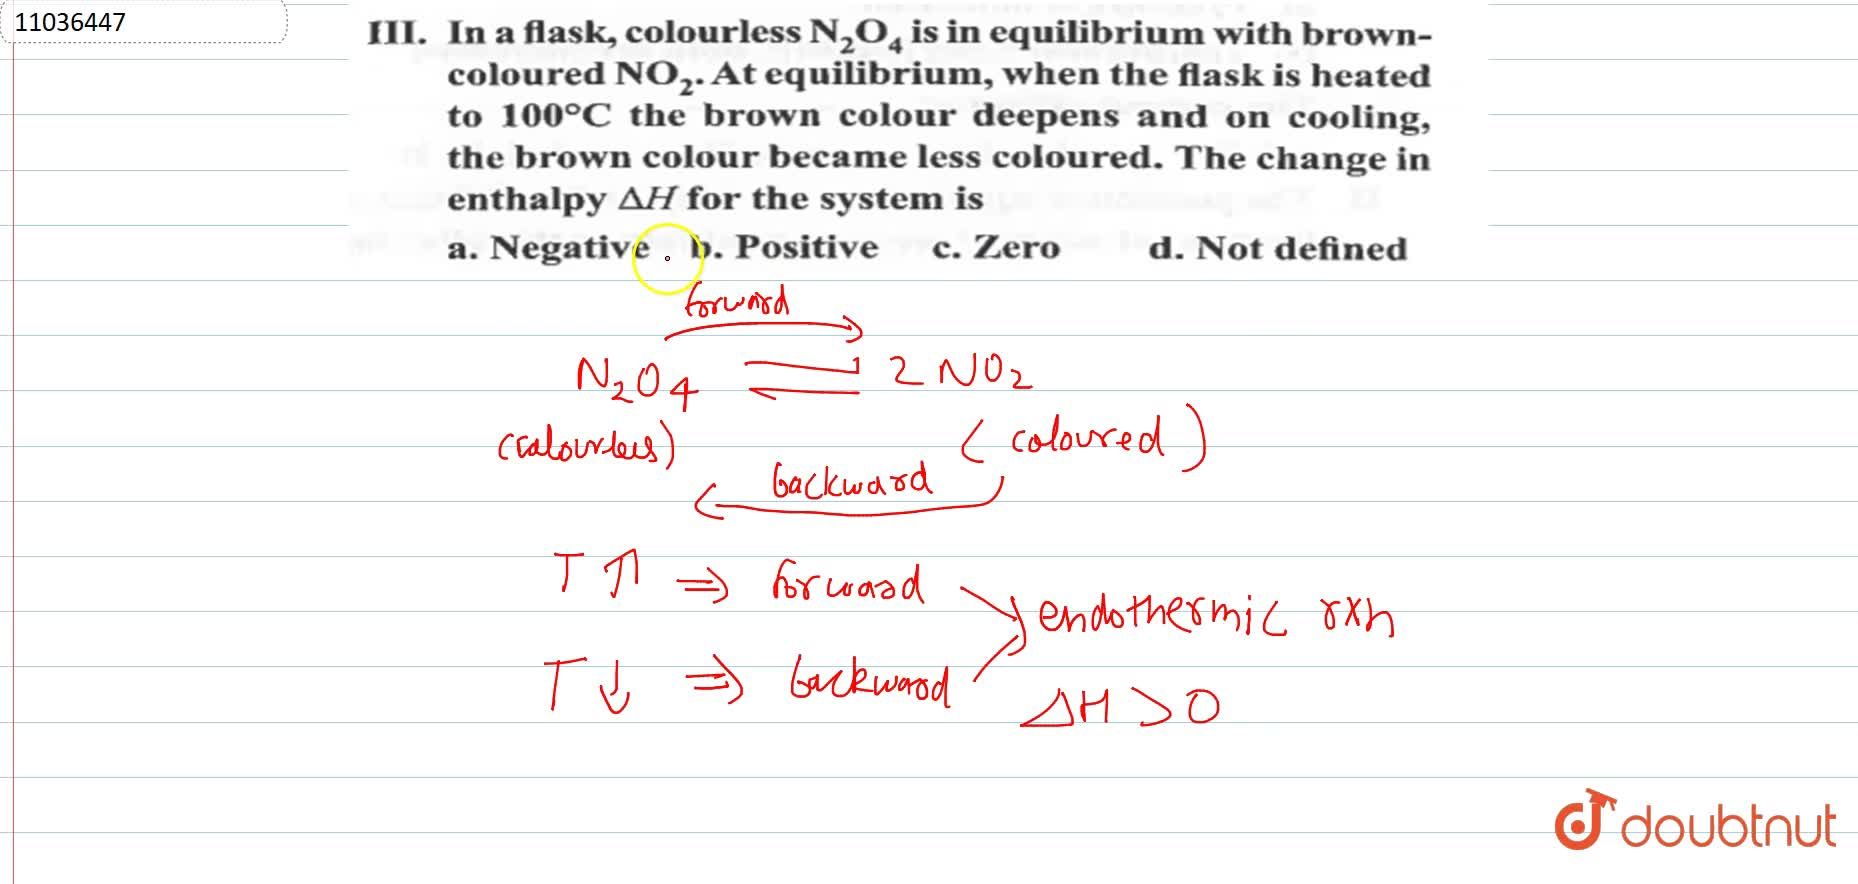 11036447
III. In a flask, colourless N₂O₄ is in equilibrium with brown-
coloured NO₂. At equilibrium, when the flask is heated
to 100°C the brown colour deepens and on cooling,
the brown colour became less coloured. The change in
enthalpy ΔH for the system is
a. Negative b. Positive c. Zero d. Not defined
forward
N₂O₄ ⇌ 2 NO₂
(colourless) (coloured)
backward
T ↑ ⇒ forward
endothermic rxn
T ↓ ⇒ backward
ΔH > 0
doubtnut